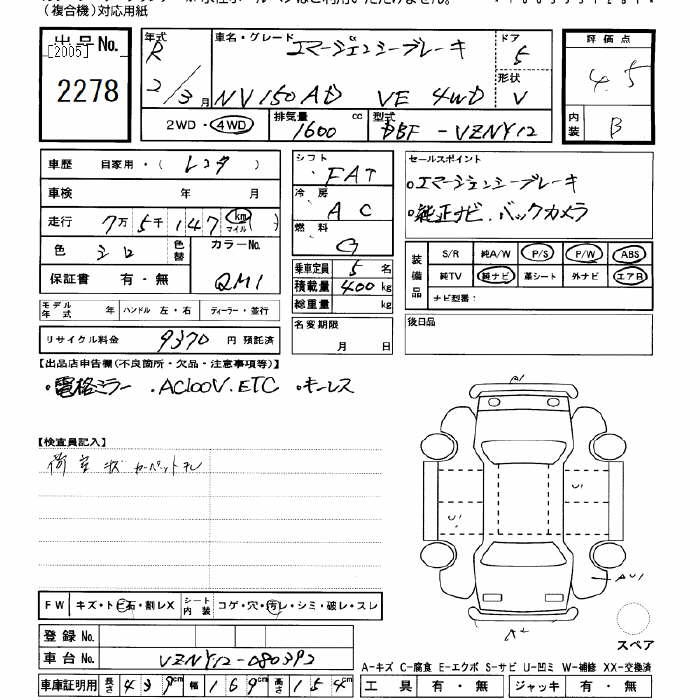 (複合機)対応用紙
出品No.
[2005]
2278
年式 R 2/3月
車名・グレード エマージェンシーブレーキ
NV150AD VE 4WD
ドア 5
形状 V
2WD・4WD
排気量 1600 cc
型式 DBF-VZNY12
評価点 4.5
内装 B
車歴 自家用・(レンタ)
車検 年 月
走行 7万5千147 km マイル
色 シロ 色替
カラーNo. QM1
保証書 有・無
モデル年式 年 ハンドル 左・右 ディーラー・並行
リサイクル料金 9370 円 預託済
シフト FAT
冷房 AC
燃料 G
乗車定員 5 名
積載量 400 kg
総重量 kg
名変期限
月 日
セールスポイント
・エマージェンシーブレーキ
・純正ナビ.バックカメラ
装備品
S/R 純A/W P/S P/W ABS
純TV 純ナビ 革シート 外ナビ エアB
ナビ型番:
後日品
【出品店申告欄(不良箇所・欠品・注意事項等)】
・電格ミラー .AC100V.ETC ・キーレス
【検査員記入】
荷室状 カーペットヨレ
A1
U1
U1
AU1
A2
スペア
FW キズ・トビ石・割レX シート内装 コゲ・穴・汚レ・シミ・破レ・スレ
登録No.
車台No. VZNY12-080392
車庫証明用 長さ 439cm 幅 169cm 高さ 154cm
A-キズ C-腐食 E-エクボ S-サビ U-凹ミ W-補修 XX-交換済
工具 有・無 ジャッキ 有・無